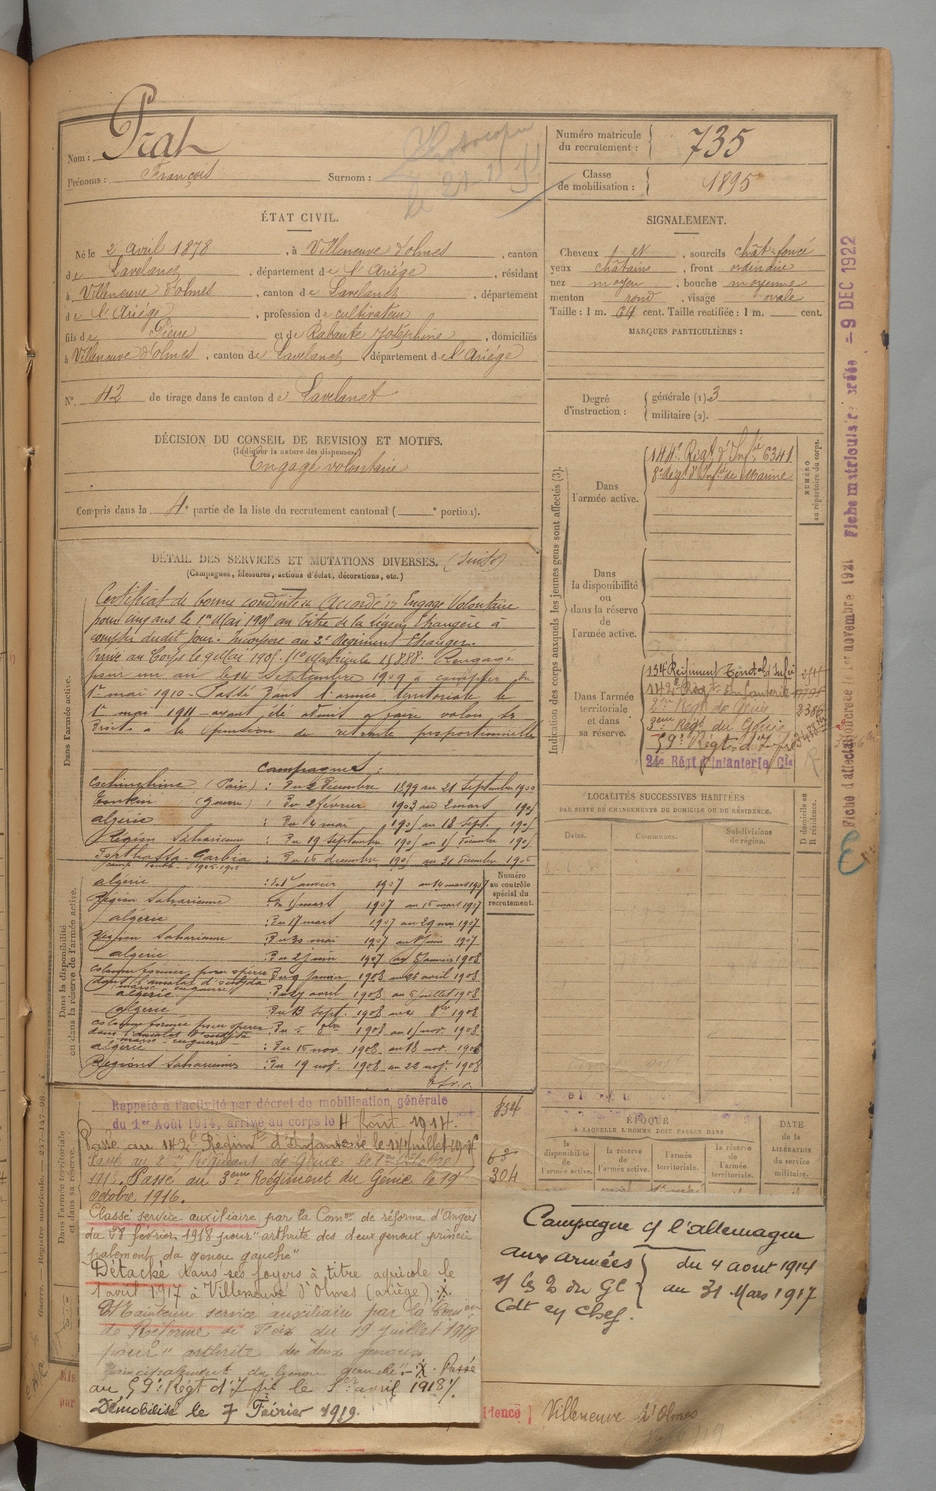 Nom : Prat
Prénoms : François Surnom :
Numéro matricule du recrutement : 735
Classe de mobilisation : 1895
ÉTAT CIVIL.
Né le 2 avril 1878, à Villeneuve d'olmes, canton
de Lavelanet, département de l'Ariège, résidant
à Villeneuve d'olmes, canton de Lavelanet, département
de l'Ariège, profession de cultivateur
fils de Pierre et de Rabaute Joséphine, domiciliés
à Villeneuve d'Olmes, canton de Lavelanet, département de l'Ariège
N° 42 de tirage dans le canton de Lavelanet
SIGNALEMENT.
Cheveux, sourcils chât-foncé
yeux châtains, front ordinaire
nez moyen, bouche moyenne
menton rond, visage ovale
Taille : 1 m. 64 cent. Taille rectifiée : 1 m. cent.
MARQUES PARTICULIÈRES :
Degré d'instruction : générale (1) 3
militaire (2).
DÉCISION DU CONSEIL DE REVISION ET MOTIFS.
(Indiquer la nature des dispenses.)
Engagé volontaire
Compris dans la 4e partie de la liste du recrutement cantonal ( e portion).
Indication des corps auxquels les jeunes gens sont affectés (3).
NUMÉRO au répertoire du corps.
Dans l'armée active.
144e Régt d'Infie 6341
8e régt d'Infie de Marine
Dans la disponibilité ou dans la réserve de l'armée active.
Dans l'armée territoriale et dans sa réserve.
134e Régiment Territ. d'Infie
142e Régt Infanterie
2e Régt de Génie
3eme Régt du Génie
59e Régt d'Ifie
24e Régt d'Infanterie Cle
LOCALITÉS SUCCESSIVES HABITÉES
PAR SUITE DE CHANGEMENTS DE DOMICILE OU DE RÉSIDENCE.
Dates. Communes. Subdivisions de région.
D domicile ou R résidence.
DÉTAIL DES SERVICES ET MUTATIONS DIVERSES. (suite)
(Campagnes, blessures, actions d'éclat, décorations, etc.)
Dans l'armée active.
Certificat de bonne conduite Accordé. Engagé Volontaire
pour cinq ans le 1er Mai 1905 au titre de la légion Etrangère à
compter dudit jour. Incorporé au 2e Régiment Etranger.
Arrivé au Corps le 9 Mai 1905. Rengagé
pour un an le 14 Septembre 1909 à compter du
1er mai 1910. Passé dans l'armée territoriale le
1er mai 1911 ayant été admis à faire valoir ses
droits à la pension de retraite proportionnelle
Campagnes :
Cochinchine (Paix) : Du 2 Décembre 1899 au 21 Septembre 1900
Tonkin (Guerre) : Du 2 février 1903 au 2 mars 1905
algérie : Du 4 mai 1905 au 18 Sept. 1905
Région Saharienne : Du 19 septembre 1905 au 15 Décembre 1905
Du 16 décembre 1905 au 31 Décembre 1906
algérie : 1er Janvier 1907 au 14 mars 1907
Région Saharienne : 1907 au 16 mars 1907
algérie : Du 17 mars 1907 au 29 mai 1907
Région Saharienne : Du 30 mai 1907 au 1er Juin 1907
algérie : Du 2 juin 1907 au 8 Janvier 1908
colonne formée pour opérer dans l'amalat d'oudjda maroc en guerre : Du 9 Janvier 1908 au 26 avril 1908
algérie : Du 27 avril 1908 au 5 juillet 1908
algérie : Du 13 Sept. 1908 1908
colonne formée pour opérer dans l'amalat d'oudjda maroc-enguerre : Du 5 8bre 1908 au 15 nov. 1908
algérie : Du 16 nov. 1908 au 18 nov. 1908
Régions Sahariennes : Du 19 nov. 1908 au 22 nov. 1908
Numéro au contrôle spécial du recrutement.
Dans la disponibilité ou dans la réserve de l'armée active.
Dans l'armée territoriale et dans sa réserve.
Rappelé à l'activité par décret de mobilisation générale
du 1er Août 1914, arrivé au corps le 4 Août 1914.
Passé au 142e Régiment d'Infanterie le
Passé au 2eme Régiment de Génie le 1er Octobre
1915. Passé au 3eme Régiment du Génie le 19
Octobre 1916.
304
Classé service auxiliaire par la Comon de réforme d'Angers
du 28 février 1918 pour "arthrite des deux genoux princi
palement du genou gauche"
Détaché dans ses foyers à titre agricole le
1 avril 1917 à Villeneuve D'Olmes (ariège).
Maintenu service auxiliaire par la Comon
de Réforme de Foix du 19 juillet 1918
pour "arthrite des deux genoux
principalement du genou gauche". Passé
au 59e Régt d'Ifie le 1er avril 1918.
Démobilisé le 7 Février 1919.
ÉPOQUE
A LAQUELLE L'HOMME DOIT PASSER DANS
la disponibilité de l'armée active. la réserve de l'armée active. l'armée territoriale. la réserve de l'armée territoriale.
DATE de la LIBÉRATION du service militaire.
Campagne c/ l'allemagne
aux armées du 4 aout 1914
au 31 Mars 1917
Cdt en Chef.
Villeneuve d'Olmes
Fiche d'affectation créée le 1er novembre 1921 Fiche matriculaire créée - 9 DEC 1922